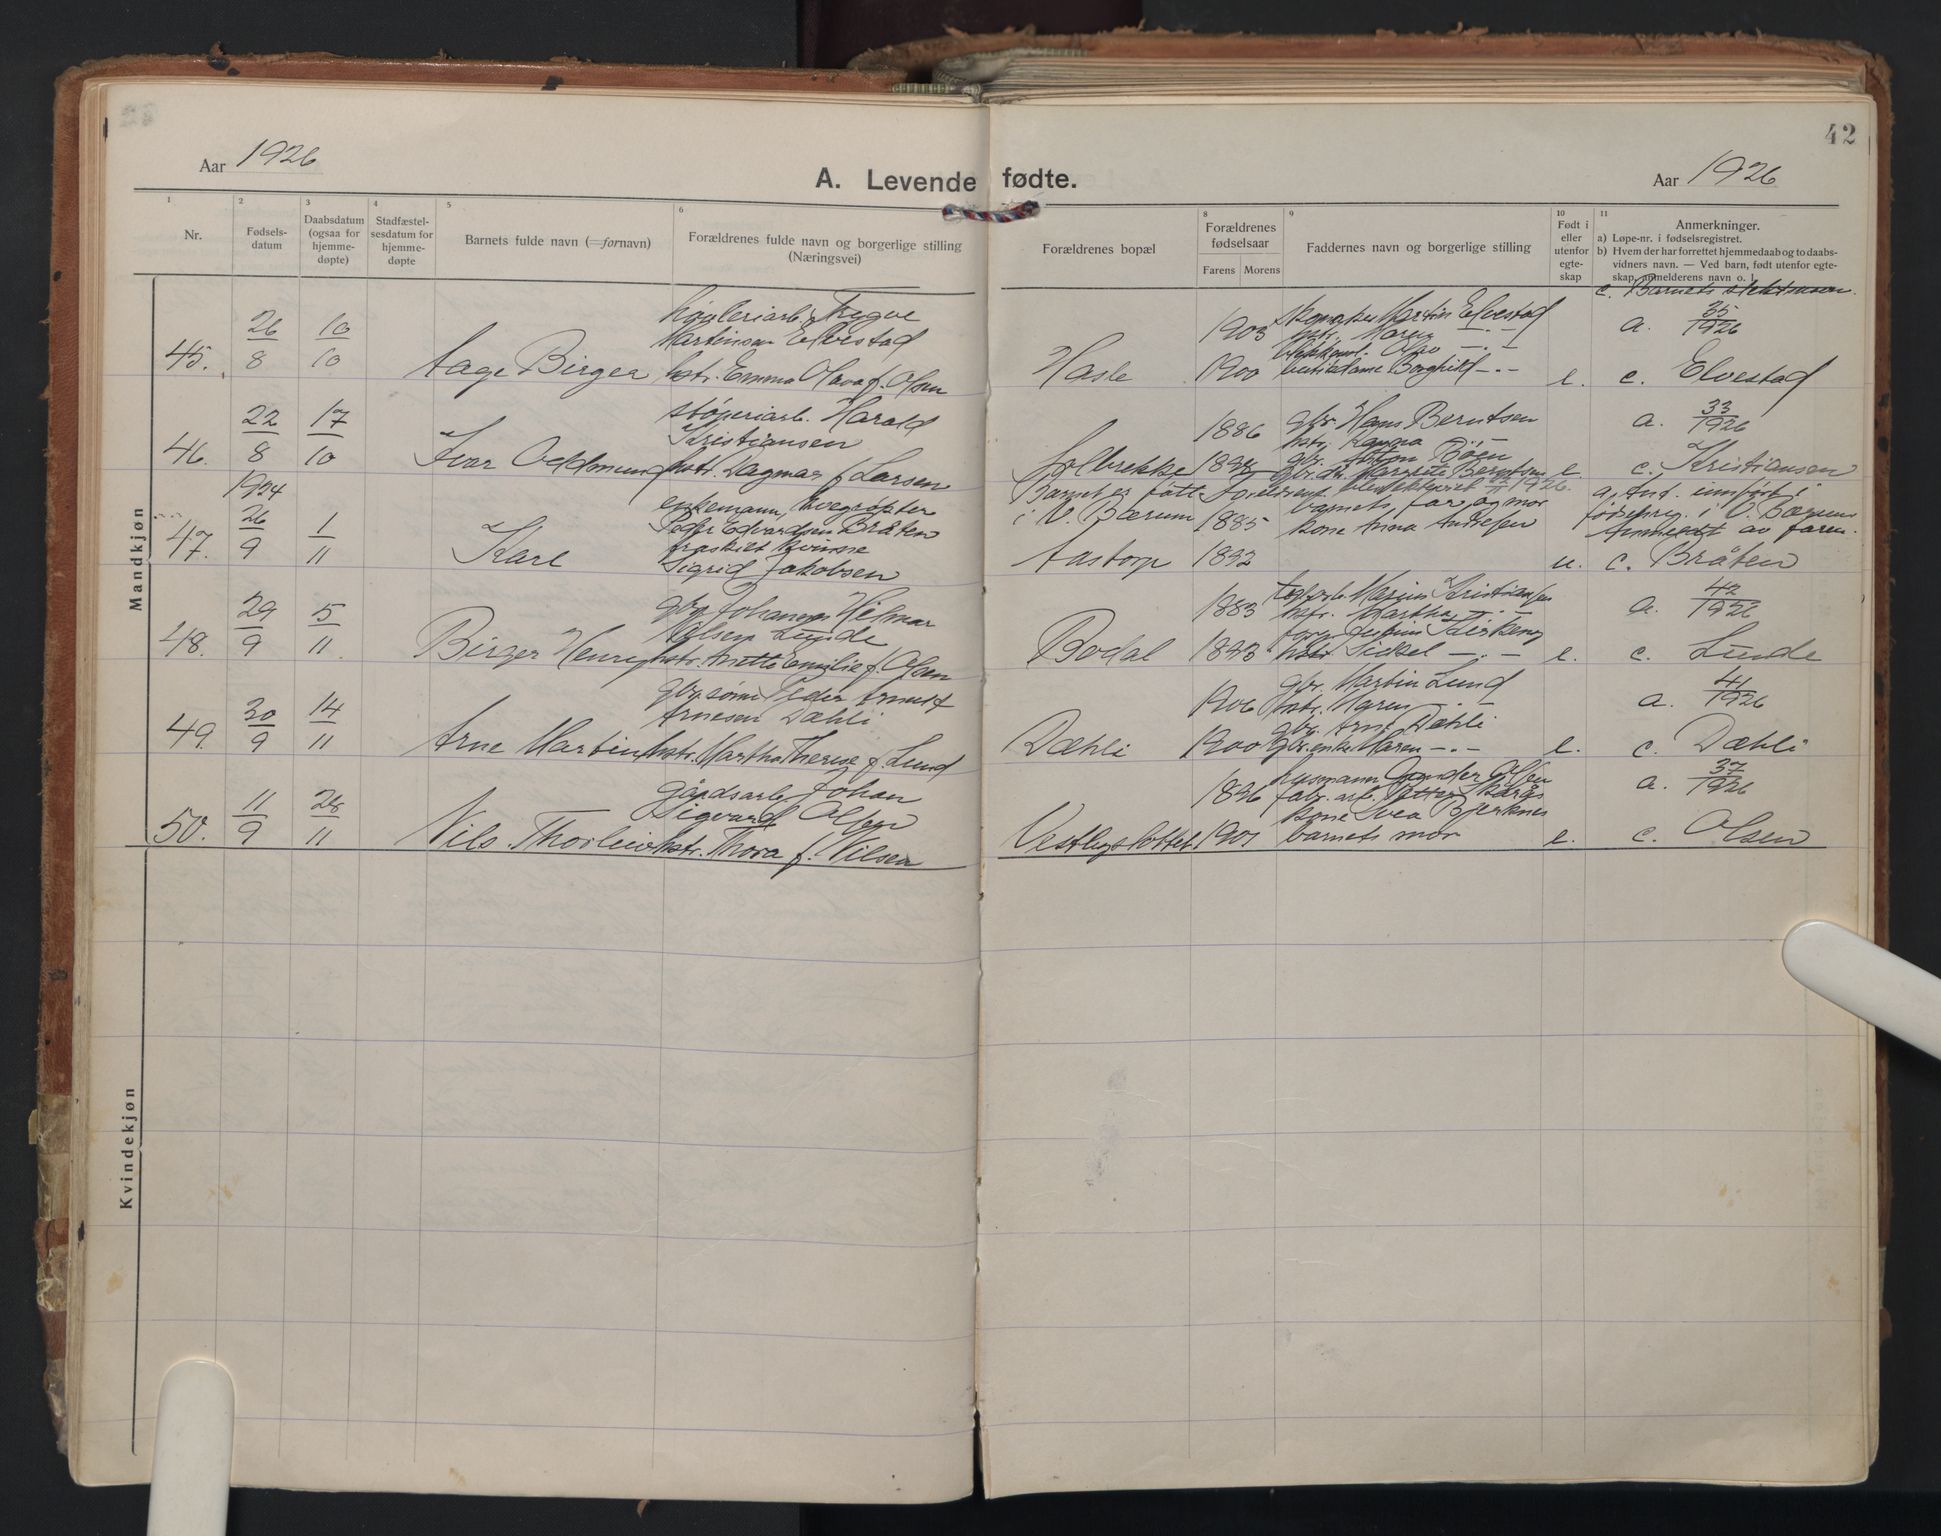 42
Aar 1926
A. Levende fødte.
Aar 1926
1 2 3 4 5 6 8 9 10 11
Nr.
Fødsels-
datum
Daabsdatum
(ogsaa for
hjemme-
døpte)
Stadfæstel-
sesdatum for
hjemme-
døpte
Barnets fulde navn (=fornavn)
Forældrenes fulde navn og borgerlige stilling
(Næringsvei)
Forældrenes bopæl
Forældrenes
fødselsaar
Farens Morens
Faddernes navn og borgerlige stilling
Født i
eller
utenfor
egte-
skap
Anmerkninger.
a) Løpe-nr. i fødselsregistret.
b) Hvem der har forrettet hjemmedaab og to daabs-
vidners navn. — Ved barn, født utenfor egte-
skap, anmelderens navn o. l.
c. Barnets slektsnavn.
Mandkjøn
45. 26/8 10/10 Aage Birger
høvleriarb. Trygve
Martinsen Elvestad
hstr. Emma Olava f. Olsen
Hasle
1903
1900
skomaker Martin Elvestad
hstr. Maren — " —
Borghild — " —
e.
a. 35/1926
c. Elvestad
46. 22/8 17/10 Ivar Oddmund
støperiarb. Harald
Kristiansen
hstr. Dagmar f. Larsen
Solbrekke
1886
gbr. Hans Berntsen
hstr.
gbr. Anton Bøen
gbr. dr. Margrete Berntsen
e.
a. 33/1926
c. Kristiansen
47. 1924 26/9 1/11 Karl
enkemann, hvegrøfter
Peder Edvardsen Bråten
fraskilt kvinne
Sigrid Jakobsen
Barnet er født
i V. Bærum
Aastorp
1885
1892
Foreldrene 1926.
barnets far og mor
kone Anna Andresen
u.
a. Ant. innført i
fødselsreg. i V. Bærum
Anmeldt av faren.
c. Bråten
48. 29/9 5/11 Birger Henry
gbr. Johannes Hilmar
Nilsen Lunde
hstr. Anette Emilie f. Olsen
Bodal
1883
1893
Marius Kristiansen
hstr. Martha — " —
Kirkeng
hstr. Sickel — " —
e.
a. 42/1926
c. Lunde
49. 30/9 14/11 Arne Martin
gbr.sønn Peder Arnulf
Arnesen Dæhli
hstr. Martha Therese f. Lund
Dæhli
1906
1900
gbr. Martin Lund
hstr. Maren — " —
gbr. Arne Dæhli
gbr. enke Maren — " —
e.
a. 41/1926
c. Dæhli
50. 11/9 28/11 Nils Thorleiv
gårdsarb. Johan
Sigvard Olsen
hstr. Thora f. Nilsen
Vestbyslottet
1896
1901
husmann Gunder Olsen
fabr. arb. Petter
kone Svea Bjerknes
barnets mor
e.
a. 37/1926
c. Olsen
Kvindekjøn